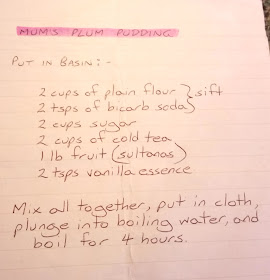 MUM'S PLUM PUDDING
PUT IN BASIN:-
2 cups of plain flour } sift
2 tsps of bicarb soda
2 cups sugar
2 cups of cold tea
1 lb fruit (sultanas)
2 tsps vanilla essence
Mix all together, put in cloth,
plunge into boiling water, and
boil for 4 hours.